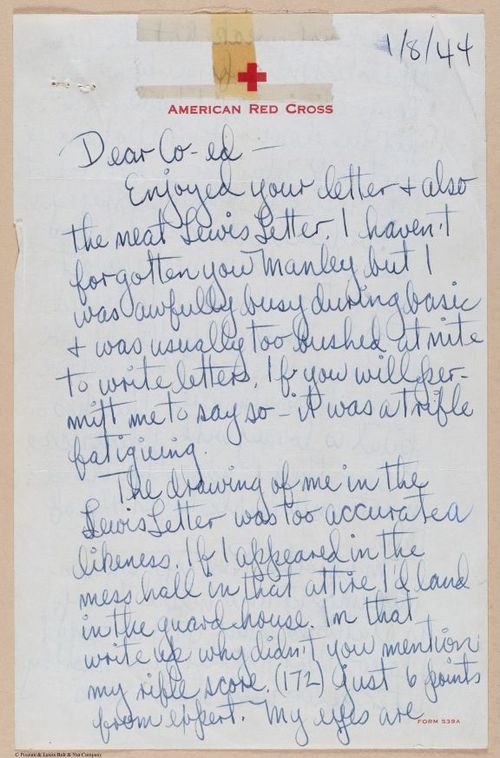 1/8/44
AMERICAN RED CROSS
Dear Co-ed —
Enjoyed your letter & also
the neat Lewis Letter. I haven't
forgotten you Manley but I
was awfully busy during basic
& was usually too bushed at nite
to write letters. If you will per-
mitt me to say so - it was a trifle
fatiguing.
The drawing of me in the
Lewis Letter was too accurate a
likeness. If I appeared in the
mess hall in that attire I'd land
in the guard house. In that
write up why didn't you mention
my rifle score. (172) Just 6 points
from expert. My eyes are
FORM 539A
© Pozzuoli & Lewis Bolt & Nut Company